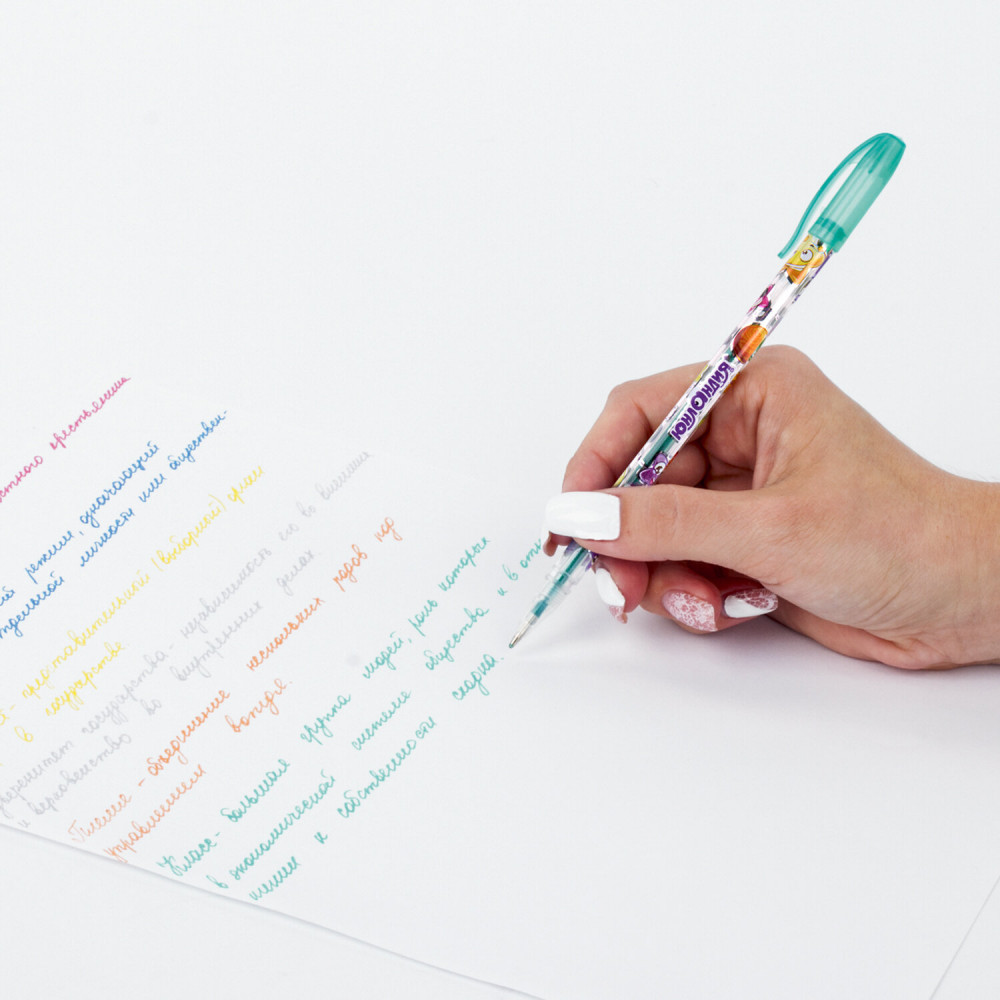 крестьянина
режим, означающий
личности или обществен-
представительной (выборной) организации
в государстве
суверенитет государства - независимость его во внешних
и верховенство во внутренних делах
Племя - объединение нескольких родов под
управлением вождя.
Класс - большая группа людей, роль которых
в экономической системе общества и в отно
шении к собственности сходна.
ЮНЛАНДИЯ